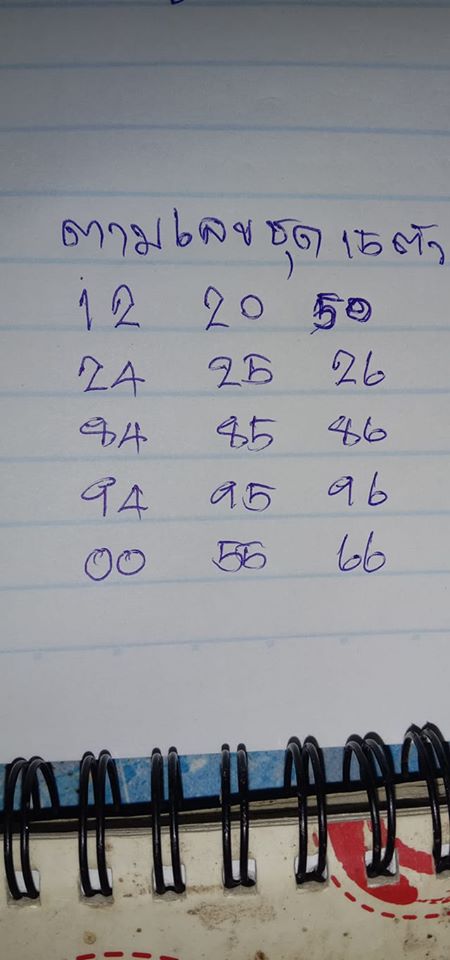 ตามเลขชุด 15 ตัว
12 20 50
24 25 26
84 85 86
94 95 96
00 55 66